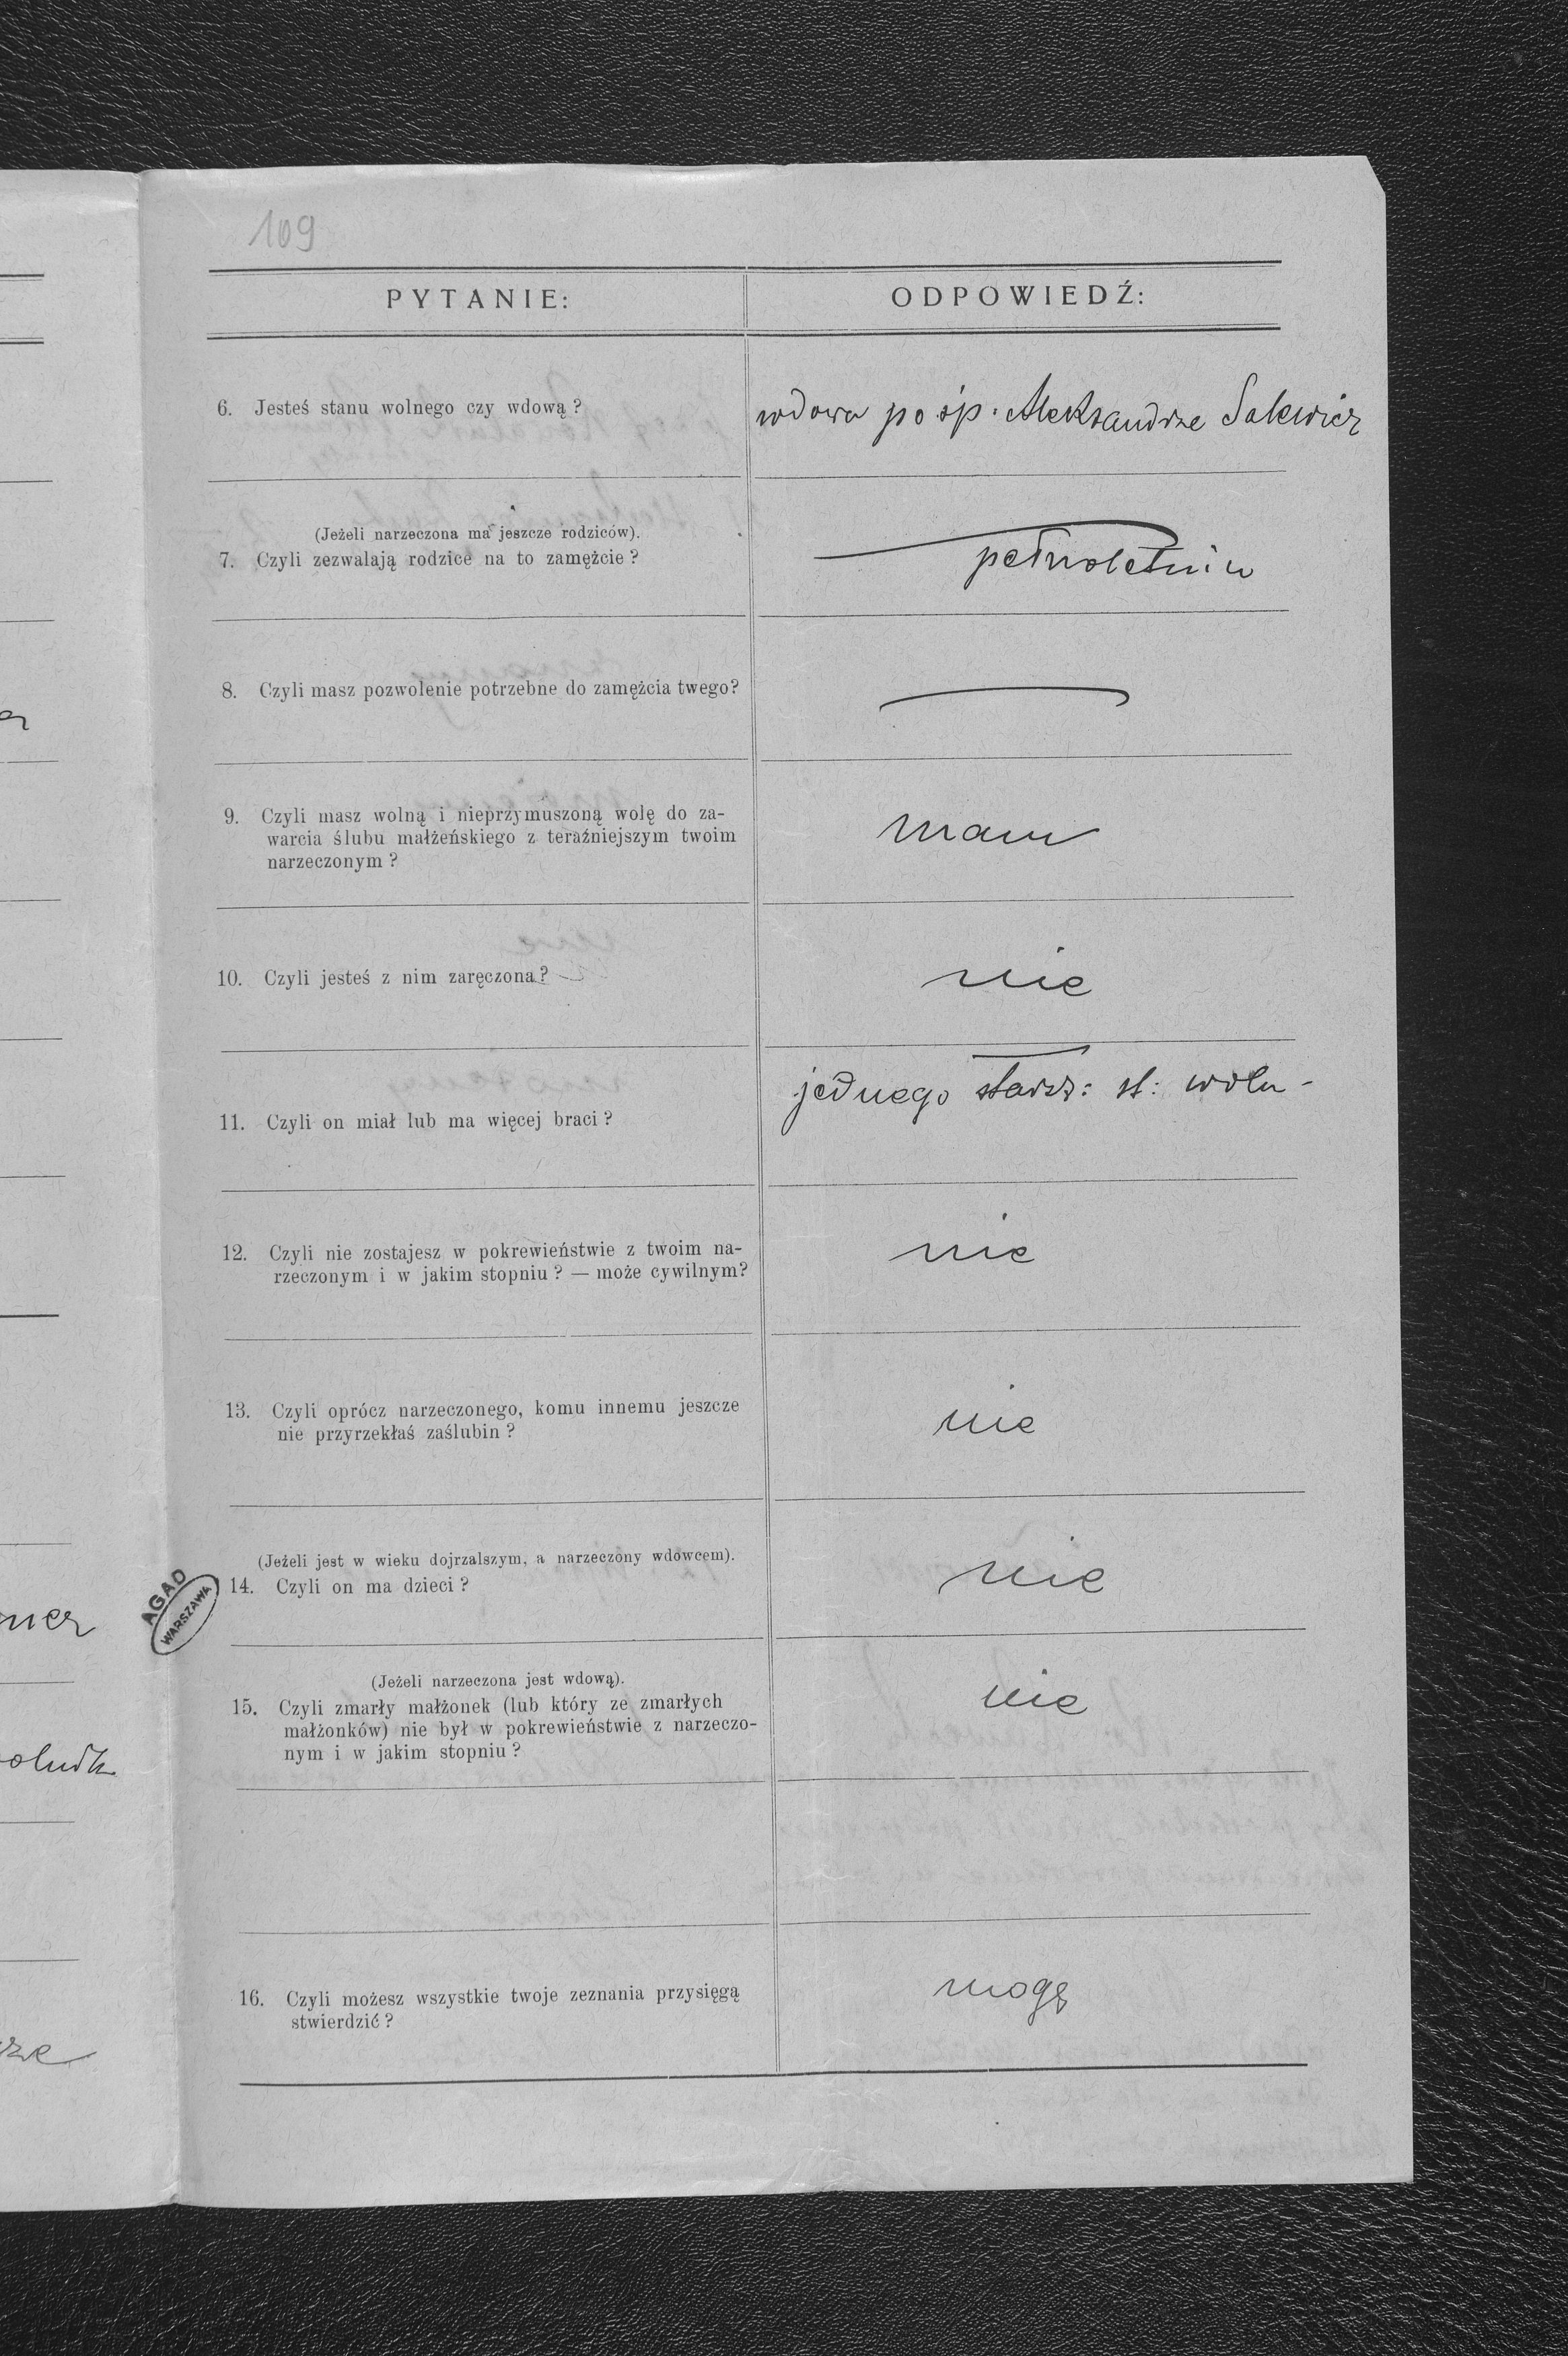 109
PYTANIE:
ODPOWIEDŹ:
6. Jesteś stanu wolnego czy wdową?
wdowa po śp. Aleksandrze Salewicz
(Jeżeli narzeczona ma jeszcze rodziców).
7. Czyli zezwalają rodzice na to zamężcie?
pełnoletnia
8. Czyli masz pozwolenie potrzebne do zamężcia twego?
9. Czyli masz wolną i nieprzymuszoną wolę do za-
warcia ślubu małżeńskiego z teraźniejszym twoim
narzeczonym?
mam
10. Czyli jesteś z nim zaręczona?
nie
11. Czyli on miał lub ma więcej braci?
jednego starsz: st: woln-
12. Czyli nie zostajesz w pokrewieństwie z twoim na-
rzeczonym i w jakim stopniu? — może cywilnym?
nie
13. Czyli oprócz narzeczonego, komu innemu jeszcze
nie przyrzekłaś zaślubin?
nie
(Jeżeli jest w wieku dojrzalszym, a narzeczony wdowcem).
14. Czyli on ma dzieci?
nie
AGAD
WARSZAWA
(Jeżeli narzeczona jest wdową).
15. Czyli zmarły małżonek (lub który ze zmarłych
małżonków) nie był w pokrewieństwie z narzeczo-
nym i w jakim stopniu?
nie
16. Czyli możesz wszystkie twoje zeznania przysięgą
stwierdzić?
mogę